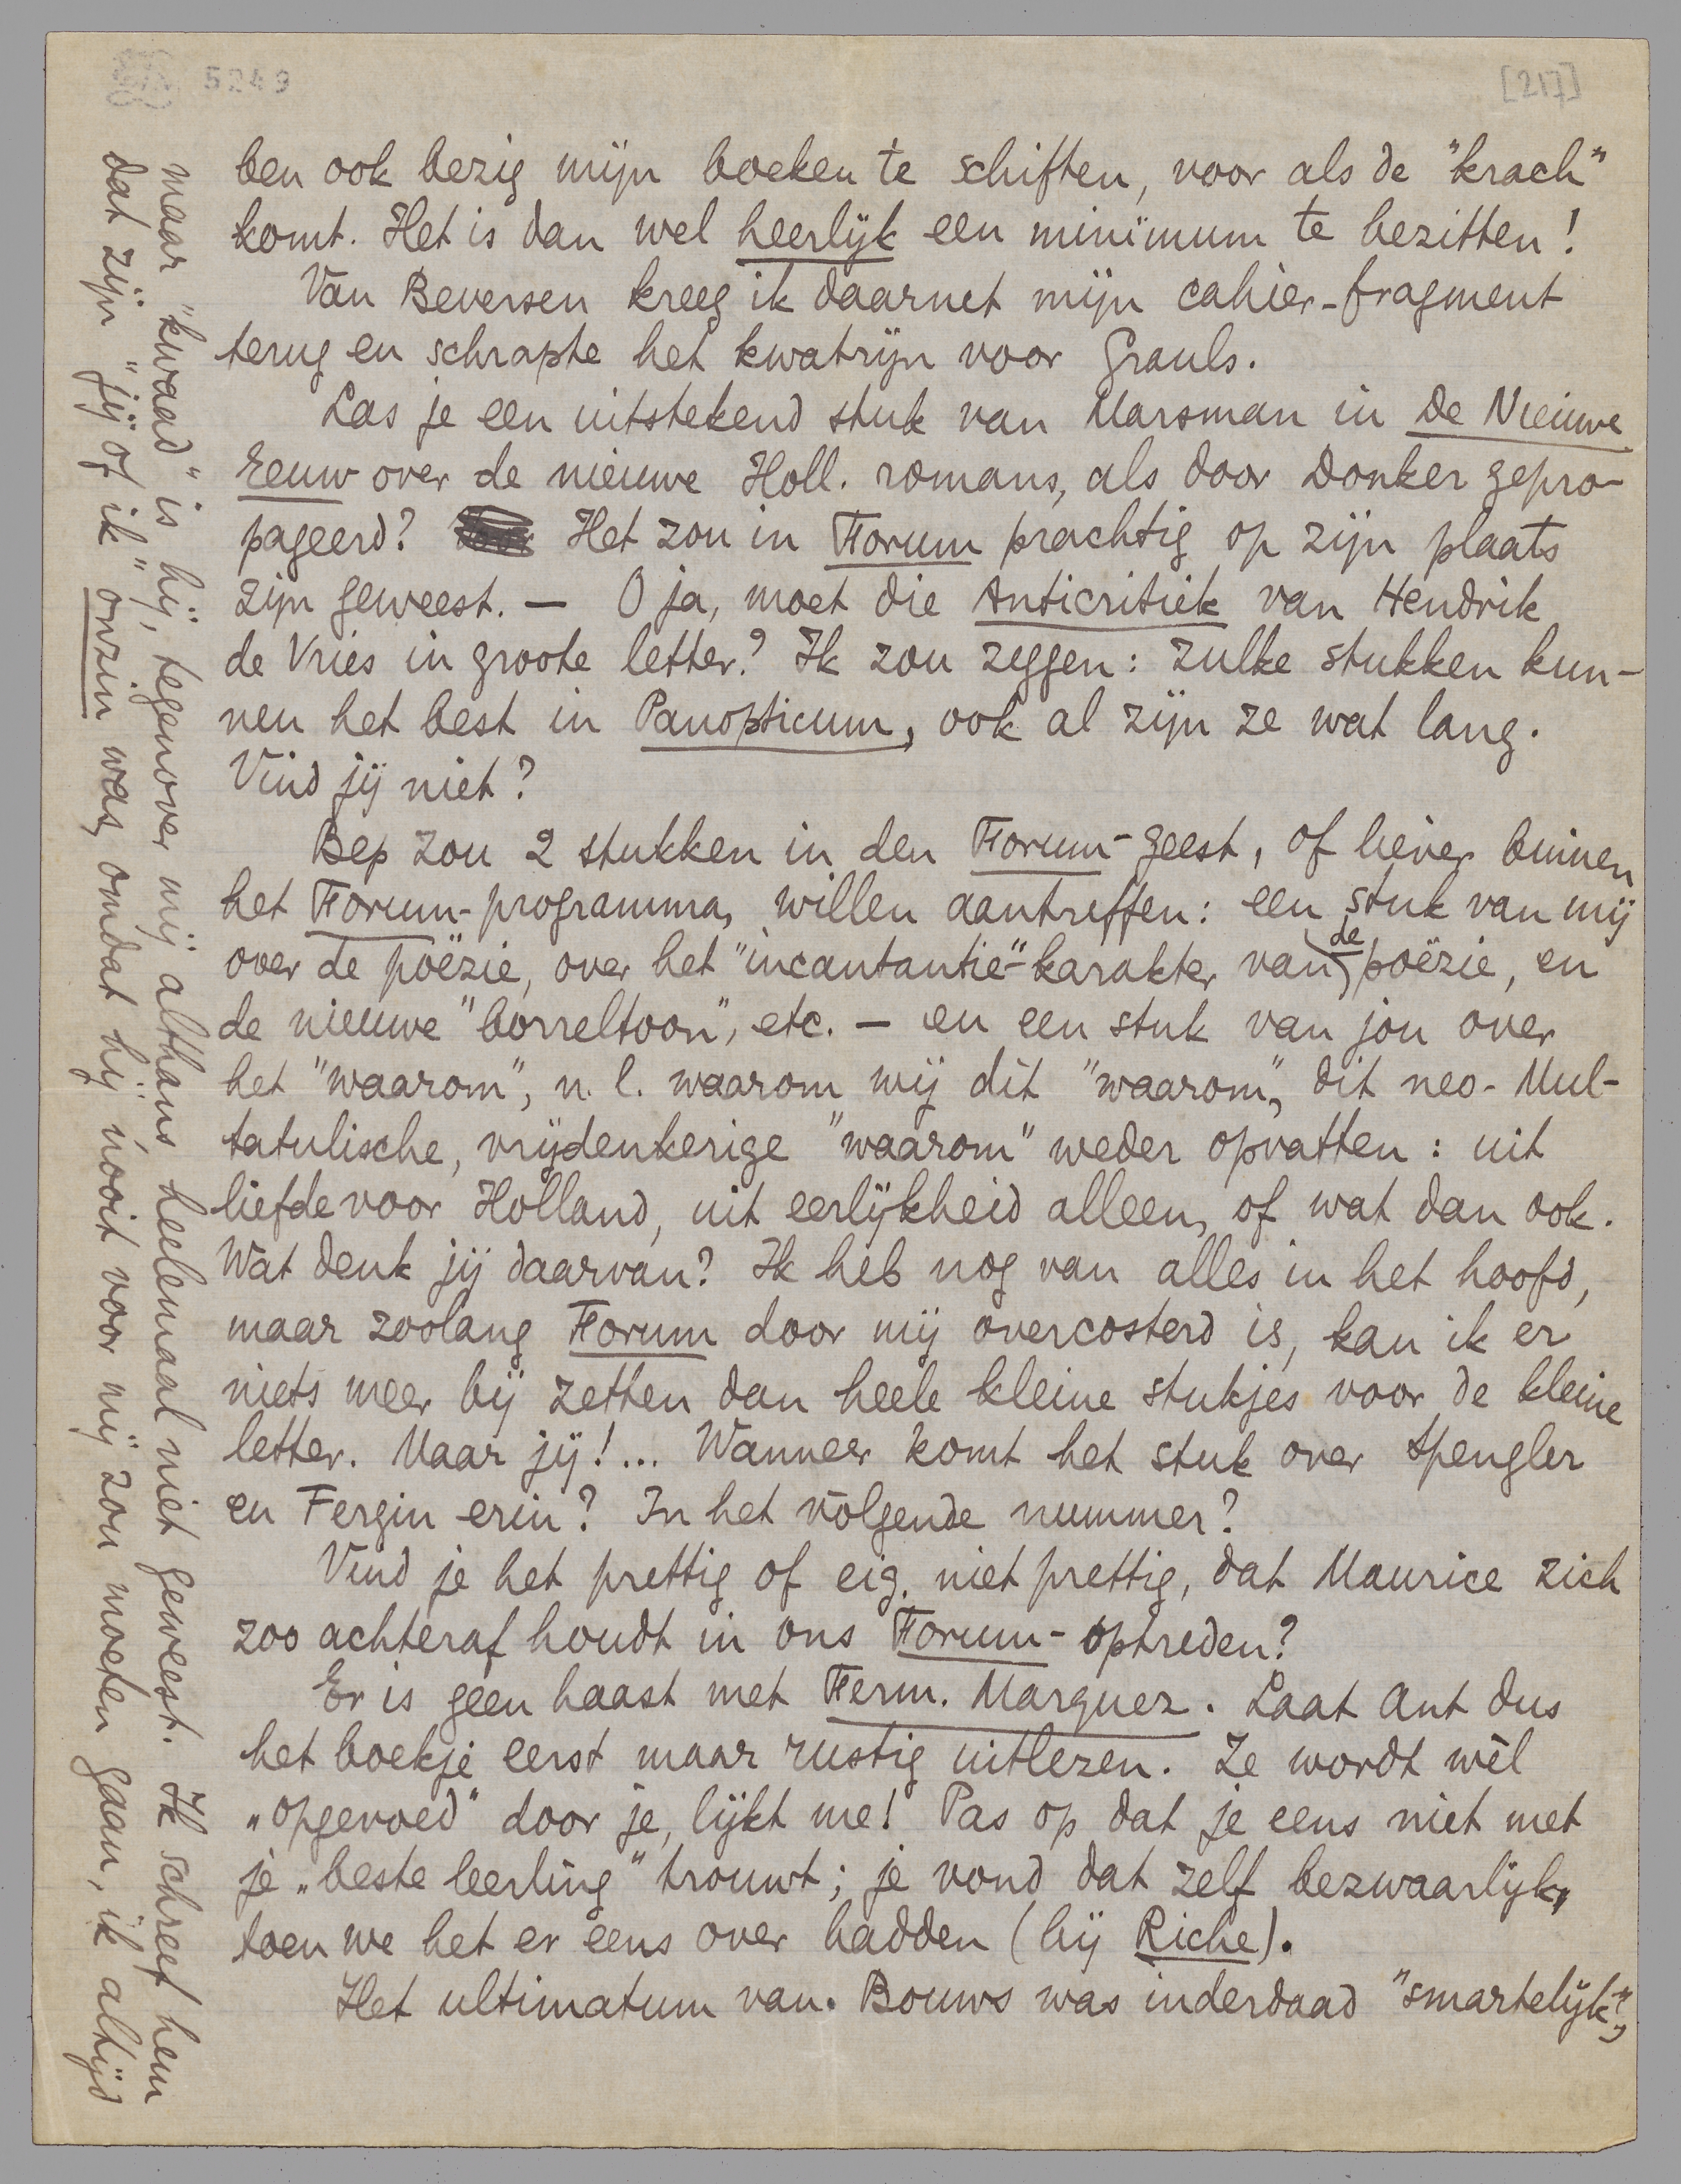 5249
[217]
ben ook bezig mijn boeken te schiften, voor als de "krach"
komt. Het is dan wel heerlijk een minimum te bezitten!
Van Beversen kreeg ik daarnet mijn cahier-fragment
terug en schrapte het kwatrijn voor Grauls.
Las je een uitstekend stuk van Marsman in De Nieuwe
Eeuw over de nieuwe Holl. romans, als door Donker gepro-
pageerd? Het zou in Forum prachtig op zijn plaats
zijn geweest. — O ja, moet die Anticritiek van Hendrik
de Vries in groote letter? Ik zou zeggen: zulke stukken kun-
nen het best in Panopticum, ook al zijn ze wat lang.
Vind jij niet?
Bep zou 2 stukken in den Forum-geest, of liever binnen
het Forum-programma, willen aantreffen: een stuk van mij
over de poëzie, over het "incantantie"-karakter van de poëzie, en
de nieuwe "borreltoon", etc. — en een stuk van jou over
het "waarom", n.l. waarom wij dit "waarom", dit neo-Mul-
tatulische, vrijdenkerige "waarom" weder opvatten: uit
liefde voor Holland, uit eerlijkheid alleen, of wat dan ook.
Wat denk jij daarvan? Ik heb nog van alles in het hoofd,
maar zoolang Forum door mij overcosterd is, kan ik er
niets meer bij zetten dan heele kleine stukjes voor de kleine
letter. Maar jij!... Wanneer komt het stuk over Spengler
en Fergin erin? In het volgende nummer?
Vind je het prettig of eig. niet prettig, dat Maurice zich
zoo achteraf houdt in ons Forum-optreden?
Er is geen haast met Ferm. Marquez. Laat Ant dus
het boekje eerst maar rustig uitlezen. Ze wordt wèl
„opgevoed" door je, lijkt me! Pas op dat je eens niet met
je „beste leerling" trouwt; je vond dat zelf bezwaarlijk,
toen we het er eens over hadden (bij Riche).
Het ultimatum van Bouws was inderdaad "smartelijk",
maar "kwaad" is hij, tegenover mij althans, heelemaal niet geweest. Ik schreef hem
dat zijn "jij of ik" onzin was, omdat hij nooit voor mij zou moeten gaan, ik altijd